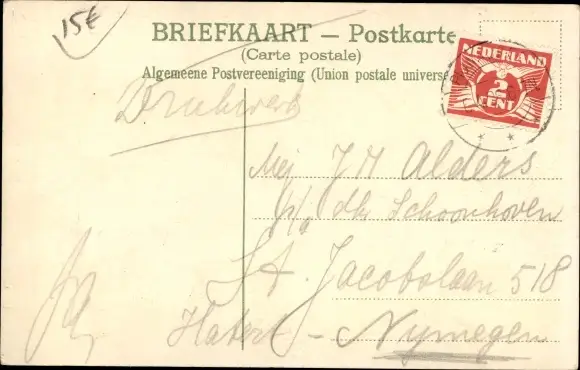 15€
BRIEFKAART — Postkarte
(Carte postale)
Algemeene Postvereeniging (Union postale univers
NEDERLAND
2
CENT
Drukwerk
Mej J H Alders
p/a dhr Schoonhoven
St. Jacobslaan 518
Hatert - Nymegen